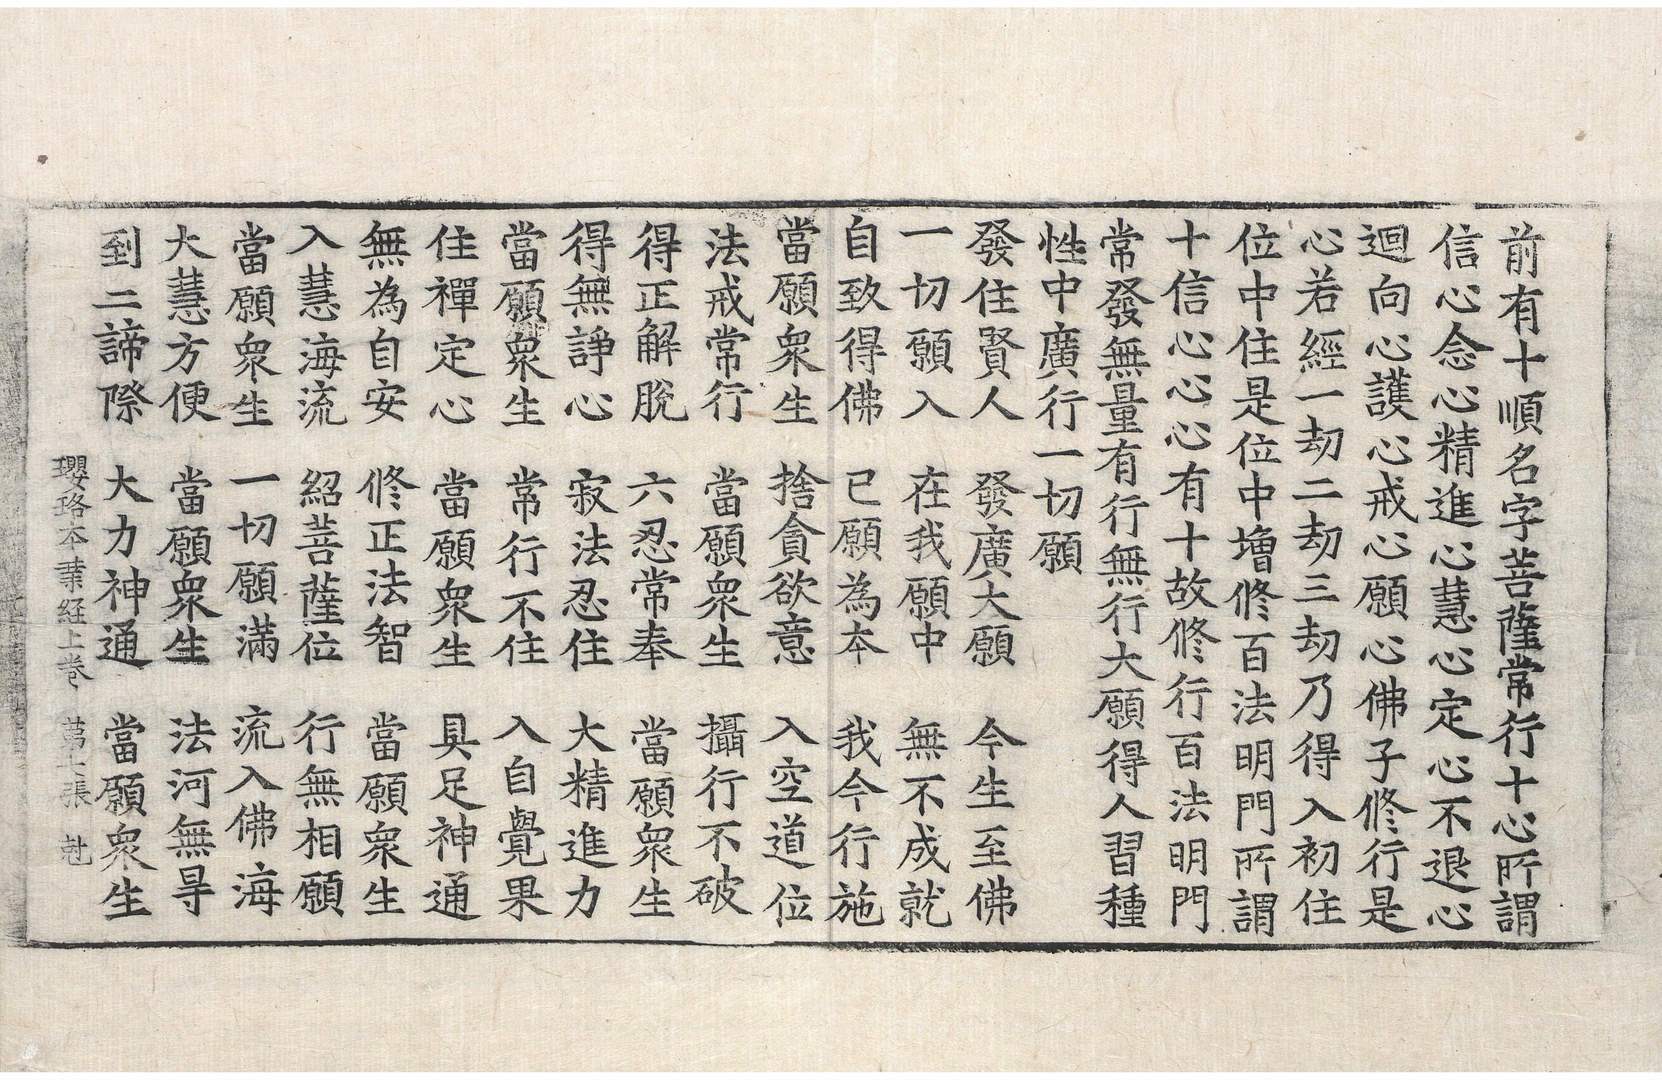 前有十順名字菩薩常行十心所謂
信心念心精進心慧心定心不退心
迴向心護心戒心願心佛子修行是
心若經一劫二劫三劫乃得入初住
位中住是位中增修百法明門所謂
十信心心心有十故修行百法明門
常發無量有行無行大願得人習種
性中廣行一切願
發住賢人 發廣大願 今生至佛
一切願入 在我願中 無不成就
自致得佛 已願為本 我今行施
當願衆生 捨貪欲意 入空道位
法戒常行 當願衆生 攝行不破
得正解脫 六忍常奉 當願衆生
得無諍心 寂法忍住 大精進力
當願衆生 常行不住 入自覺果
住禪定心 當願衆生 具足神通
無為自安 修正法智 當願衆生
入慧海流 紹菩薩位 行無相願
當願衆生 一切願滿 流入佛海
大慧方便 當願衆生 法河無㝵
到二諦際 大力神通 當願衆生
瓔珞本業経上卷 第七張 尅